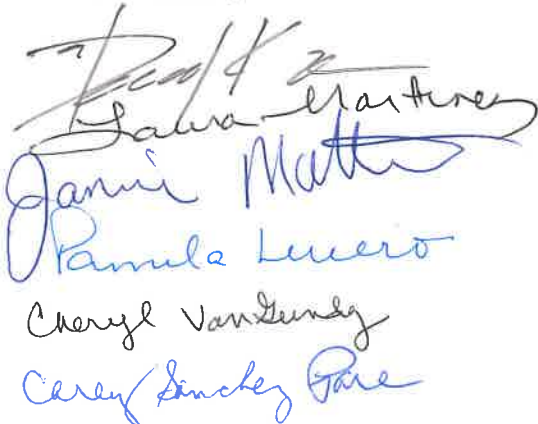 Laura Martinez
Jamie
Pamela Lucero
Cheryl VanGundy
Carey Sanchez Pare